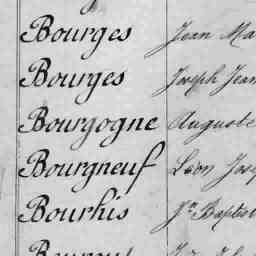 Bourges Jean Ma
Bourges Joseph Jean
Bourgogne Auguste
Bourgneuf Léon Jos
Bourhis Jn Baptist